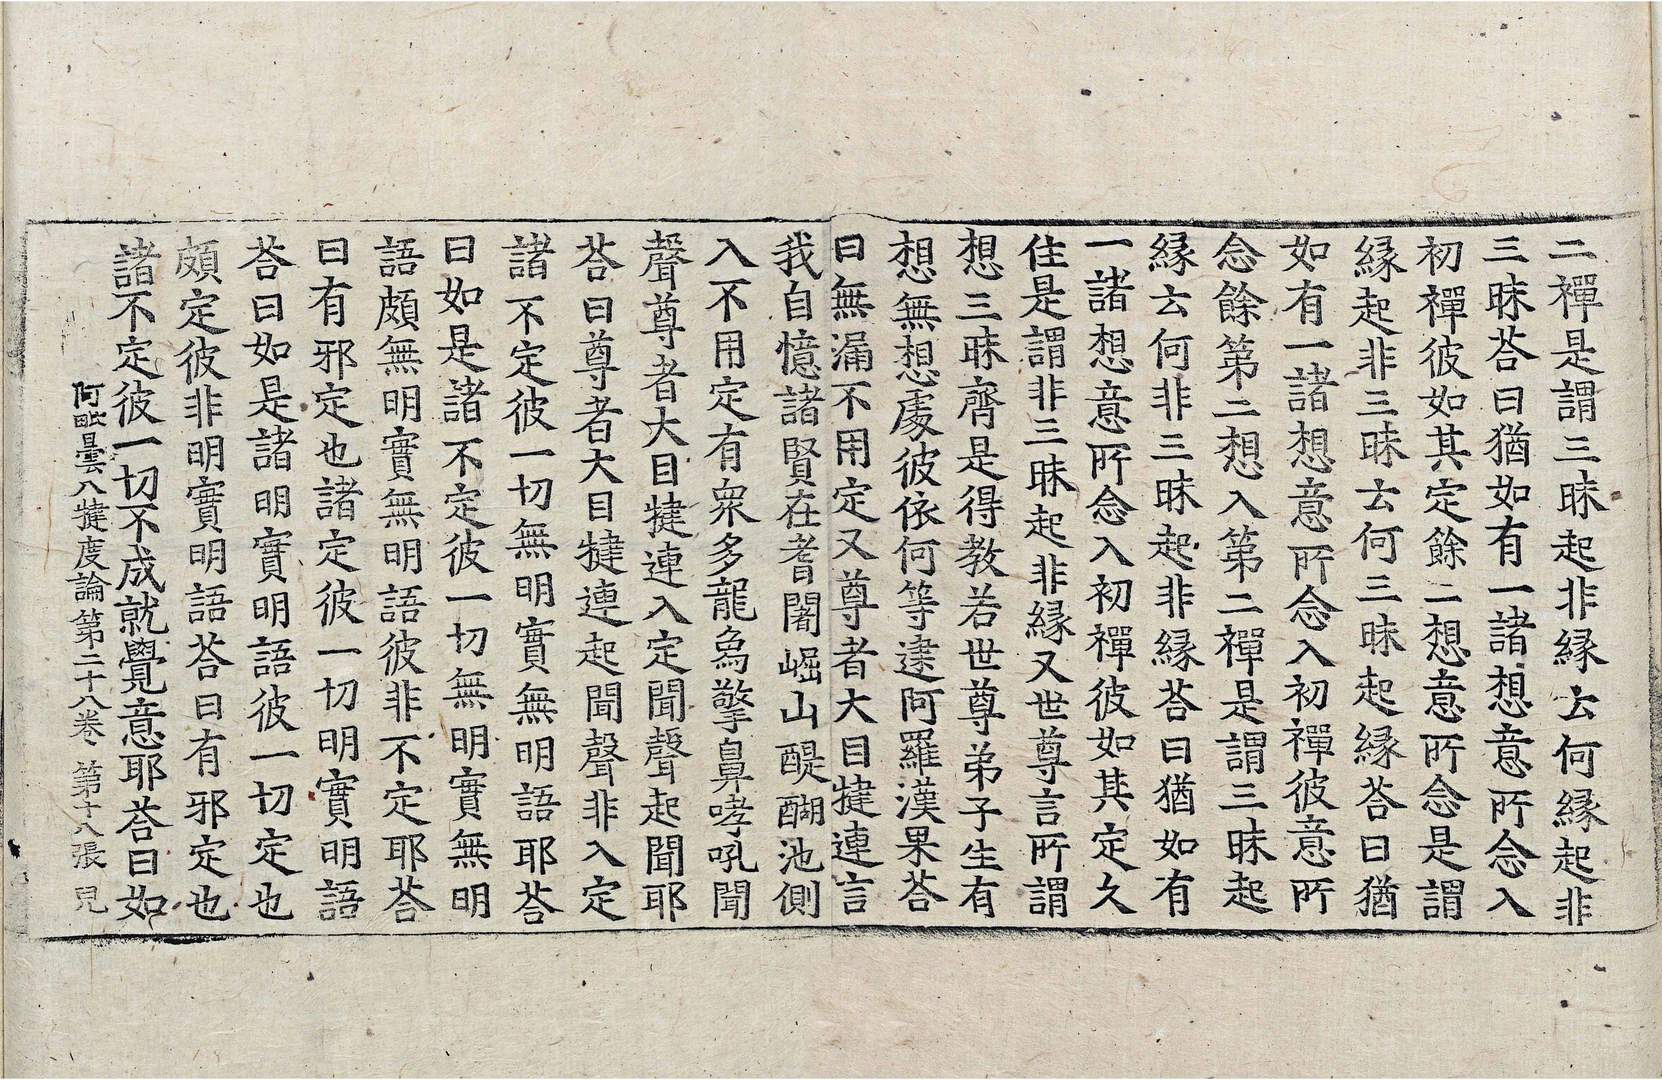 二禪是謂三昧起非緣云何緣起非
三昧荅曰猶如有一諸想意所念入
初禪彼如其定餘二想意所念是謂
緣起非三昧云何三昧起緣荅曰猶
如有一諸想意所念入初禪彼意所
念餘第二想入第二禪是謂三昧起
緣云何非三昧起非緣荅曰猶如有
一諸想意所念入初禪彼如其定久
住是謂非三昧起非緣又世尊言所謂
想三昧齊是得教若世尊弟子生有
想無想處彼依何等逮阿羅漢果荅
曰無漏不用定又尊者大目揵連言
我自憶諸賢在耆闍崛山醍醐池側
入不用定有眾多龍鳥擎鼻哮吼聞
聲尊者大目揵連入定聞聲起聞耶
荅曰尊者大目揵連起聞聲非入定
諸不定彼一切無明實無明語耶荅
曰如是諸不定彼一切無明實無明
語頗無明實無明語彼非不定耶荅
曰有邪定也諸定彼一切明實明語
荅曰如是諸明實明語彼一切定也
頗定彼非明實明語荅曰有邪定也
諸不定彼一切不成就覺意耶荅曰如
阿毗曇八揵度論第二十八卷 第十八張 皃